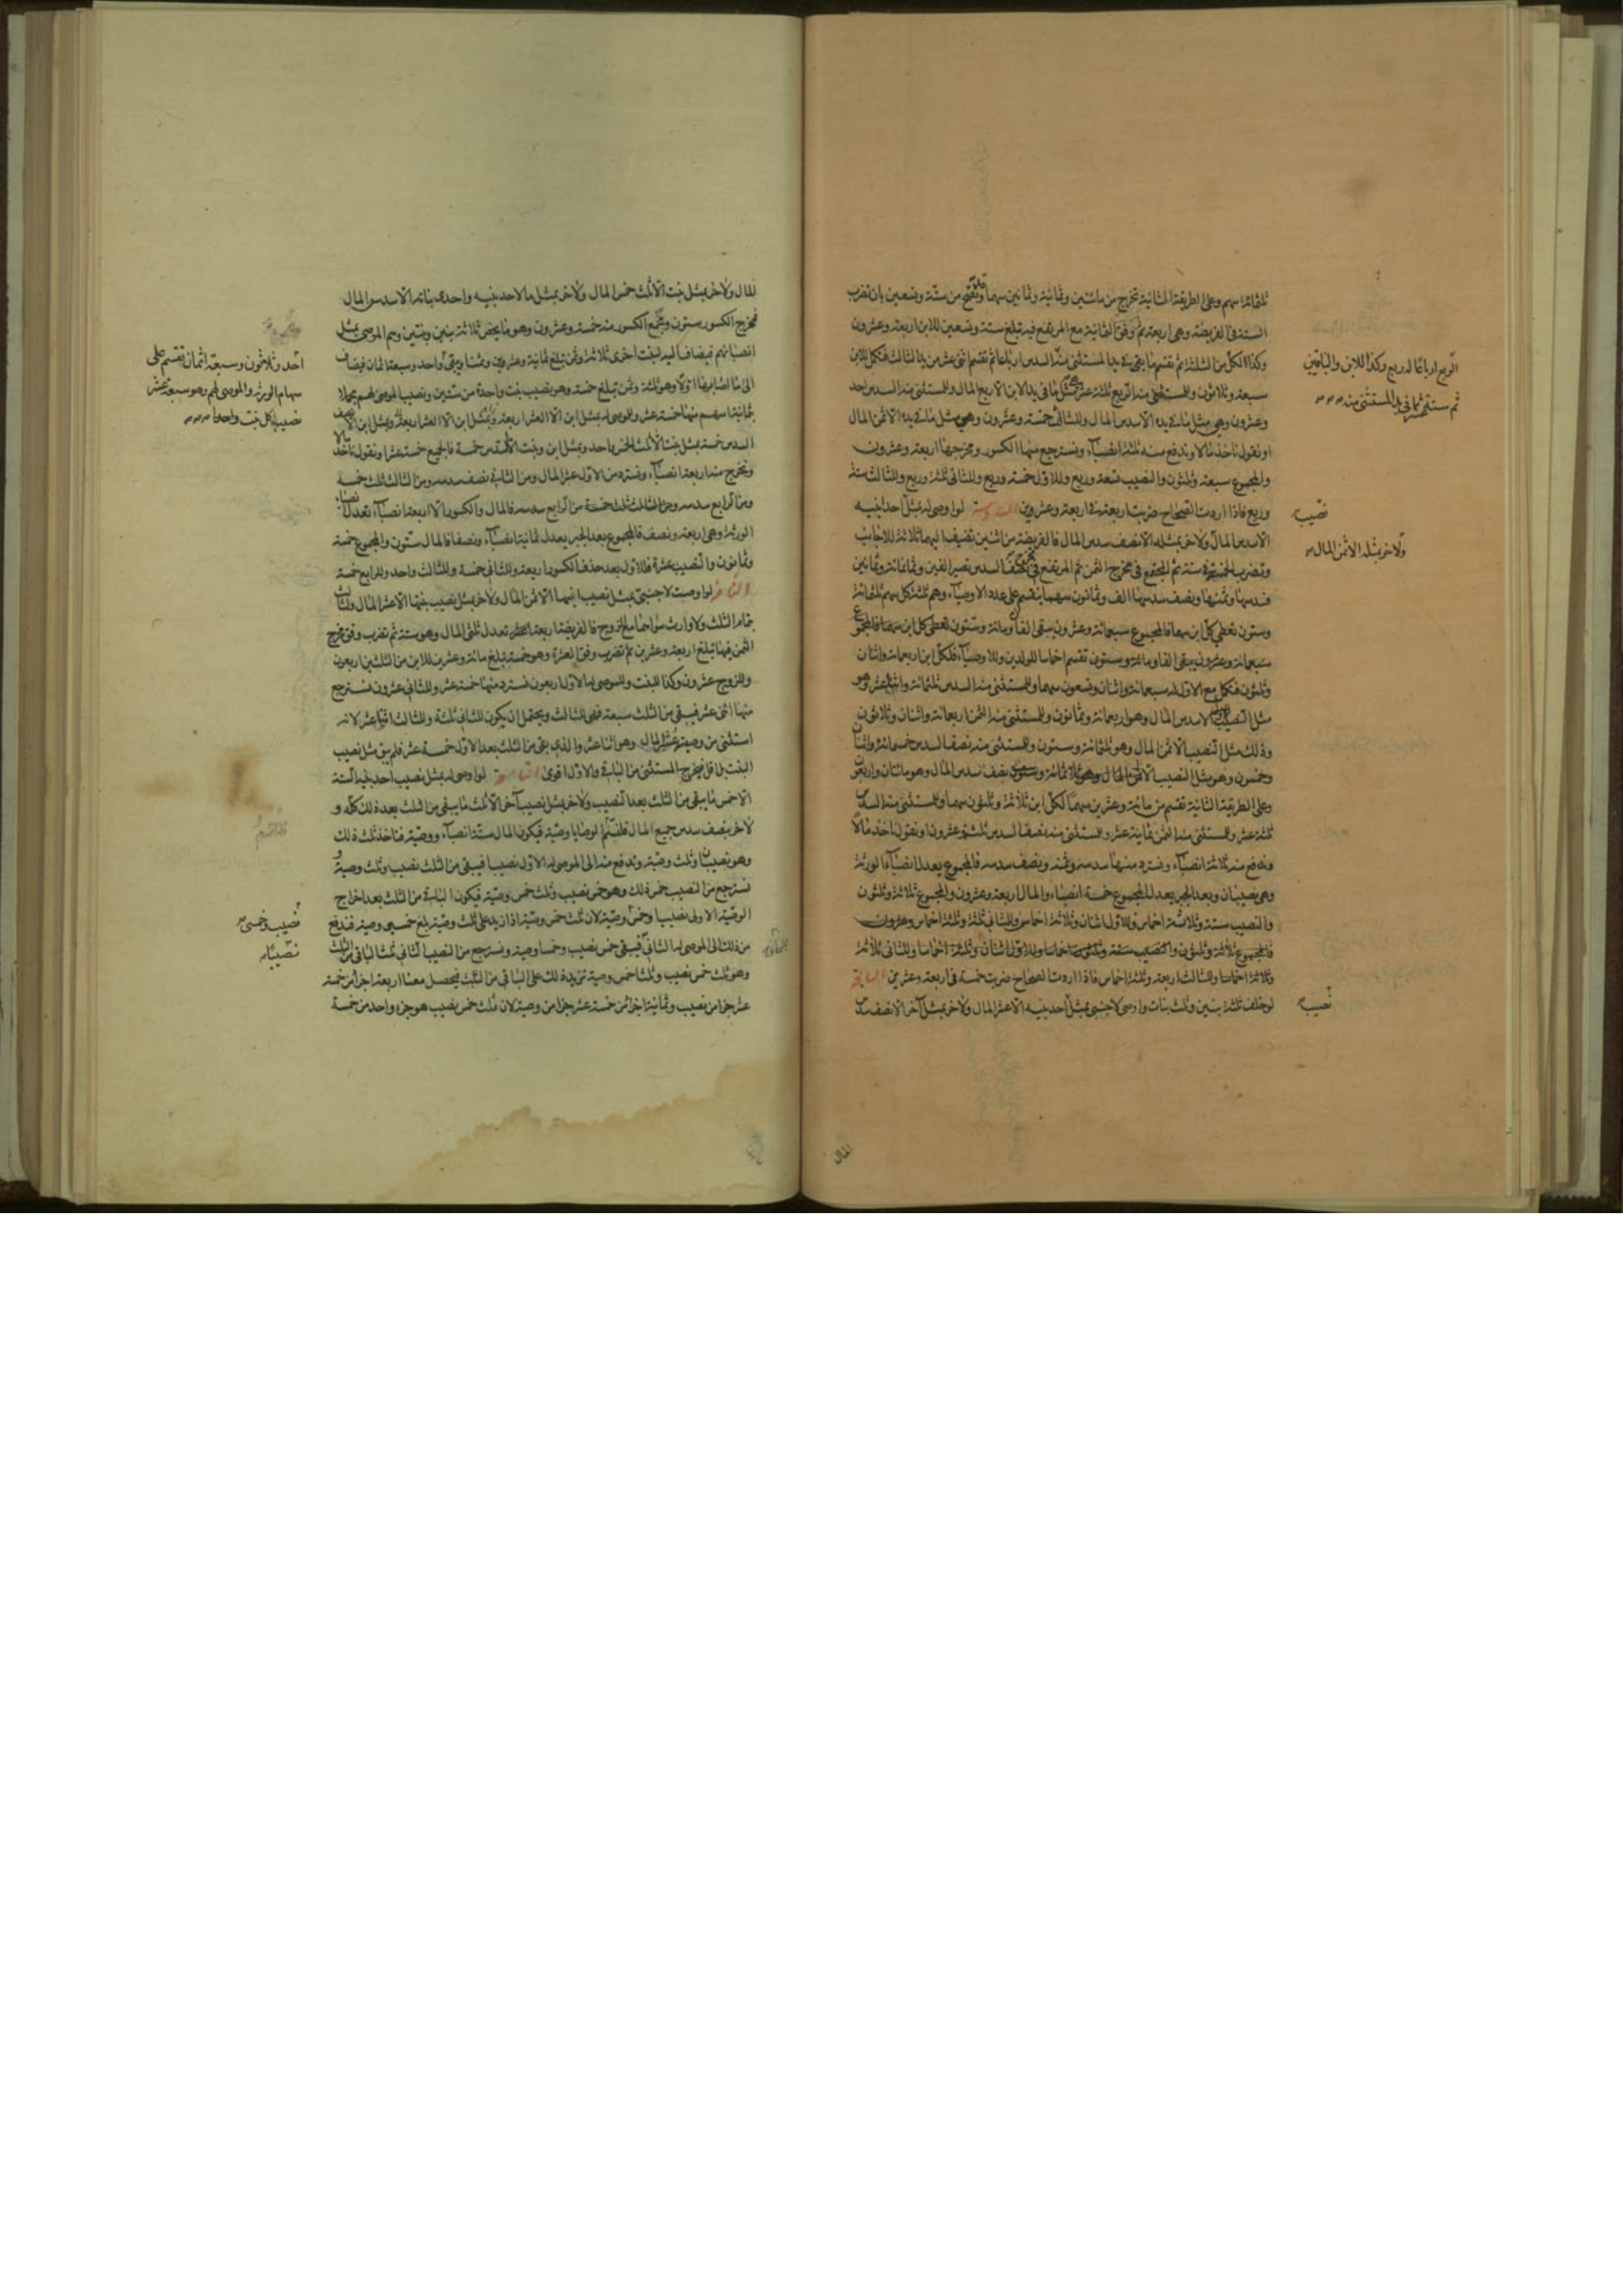 ثلثمائة سهم وعلى الطريقة الثانية تخرج من مائتين وثمانية وثمانين سهما وتصح من ستة وتسعين بان تضرب
الستة في الفريضة وهي اربعة ثم وفق الثمانية مع المرتفع فيه تبلغ ستة وتسعين للابن اربعة وعشرون
وكذا لكل من الثلثة ثم تقسم ما بقي في يد المستثنى منه السدس ارباعا ثم تقسم اثنى عشر من يد الثالث فتكمل للابن
سبعة وثلاثون وللمستثنى منه الربع ثلثة عشر مثل ما في يد الابن الا ربع المال وللمستثنى منه السدس احد
وعشرون وهي مثل ما في يده الا سدس المال وللثالث خمسة وعشرون وهي مثل ما في يده الا ثمن المال
او نقول ناخذ مالا وندفع منه ثلثة انصباء ونسترجع منها الكسور ومخرجها اربعة وعشرون
والمجموع سبعة وثلثون والنصيب تسعة وربع وللاول خمسة وربع وللثاني ثلثة وربع وللثالث ستة
وربع فاذا اردت الصحاح ضربت اربعة في اربعة وعشرين السادسة لو اوصى له بمثل احد ابنيه
الا سدس المال ولاخر بمثله الا نصف سدس المال فالفريضة من اثنين تضيف اليهما ثلاثة للاجانب
وتضرب الخمسة في ستة ثم المجتمع في مخرج الثمن ثم المرتفع في مخرج نصف السدس تصير الفين وثمانمائة وثمانين
فسدسها وثمنها ونصف سدسها الف وثمانون سهما ينقسم على عدد الاوصياء وهم ثلثة لكل سهم ثلثمائة
وستون تعطي كل ابن سهما فالمجموع سبعمائة وعشرون يبقى الفا ومائة وستون تعطي كل ابن سهما فالمجموع
سبعمائة وعشرون يبقى الفا ومائة وستون تقسم اخماسا للولدين وللاوصياء فلكل ابن اربعمائة واثنان
وثلثون فتكمل مع الاول له سبعمائة واثنان وتسعون سهما وللمستثنى منه السدس ثلثمائة واثنا عشر وهو
مثل النصيب الا سدس المال وهو اربعمائة وثمانون وللمستثنى منه الثمن اربعمائة واثنان وثلاثون
وذلك مثل النصيب الا ثمن المال وهو ثلثمائة وستون وللمستثنى منه نصف السدس خمسمائة واثنان
وخمسون وهو مثل النصيب الا نصف سدس المال وهو مائتان واربعون
وعلى الطريقة الثانية تقسم من مائة وعشرين سهما لكل ابن ثلاثة وثلثون سهما وللمستثنى منه السدس
ثلثة عشر وللمستثنى منه الثمن ثمانية عشر وللمستثنى منه نصف السدس ثلثة وعشرون او نقول ناخذ مالا
وندفع منه ثلاثة انصباء ونسترد منها سدسه وثمنه ونصف سدسه فالمجموع يعدل انصباء الورثة
وهي نصيبان وبعد الجبر يعدل المجموع خمسة انصباء والمال اربعة وعشرون والمجموع ثلاثة وثلثون
والنصيب ستة وثلاثة اخماس وللاول اثنان وثلاثة اخماس وللثاني ثلثة وثلثة اخماس وعشرون
فالمجموع ثلاثة وثلثون والنصيب ستة وثلثة اخماس وللاول اثنان وثلثة اخماس وللثاني ثلاثة
وثلاثة اخماس وللثالث اربعة وثلثة اخماس فاذا اردت الصحاح ضربت خمسة في اربعة وعشرين السابعة
لو خلف ثلثة بنين وثلث بنات واوصى لاجنبي بمثل احد بنيه الا عشر المال ولاخر بمثل آخر الا نصف سدس
الربع ارباعا له ربع وكذا للابن والباقين
ثم نستثنى مما في يد المستثنى منه
نصيب
ولاخر بمثله الا ثمن المال
نصيب
المال
المال ولاخر بمثل بنت الا ثلث خمس المال ولاخر بمثل ما لاحد بنيه واحدى بناته الا سدس المال
فمخرج الكسور ستون ومجمع الكسور منه خمسة وعشرون وهو ما يخص ثلاثة بنين وبنتين وهم الموصى بمثل
انصبائهم فيضاف اليه لبنت اخرى ثلاثة وثمن تبلغ ثمانية وعشرين وثمنا ويبقى واحد وسبعة اثمان فيضاف
الى ما اصابها اولا وهو ثلثة وثمن تبلغ خمسة وهو نصيب بنت واحدة من ستين ونصيب الموصى لهم مجملا
ثمانية اسهم منها خمسة عشر وللموصى له بمثل ابن الا العشر اربعة وبمثل ابن الا نصف
السدس خمسة بمثل بنت الا ثلث الخمس واحد وبمثل ابن وبنت الا السدس خمسة فالجميع خمسة عشر او نقول ناخذ مالا
ونخرج منه اربعة انصباء ونسترد من الاول عشر المال ومن الثاني نصف سدسه ومن الثالث ثلث خمسه
ومن الرابع سدسه فالمال والكسور الا اربعة انصباء تعدل انصباء
الورثة وهي اربعة ونصف فالمجموع بعد الجبر يعدل ثمانية انصباء ونصفا فالمال ستون والمجموع خمسة
وثمانون والنصيب عشرة فللاول بعد حذف الكسور اربعة وللثاني خمسة وللثالث واحد وللرابع خمسة
الثامنة لو اوصت لاجنبي بمثل نصيب ابنها الا ثمن المال ولاخر بمثل نصيب بنتها الا عشر المال ولثالث
بتمام الثلث ولا وارث سواهما مع الزوج فالفريضة اربعة تعدل ثلثي المال وهو ستة ثم تضرب وفق مخرج
الثمن فيها تبلغ اربعة وعشرين ثم تضرب وفق العشرة وهو خمسة تبلغ مائة وعشرين للابن من الثلثين اربعون
وللزوج عشرون وكذا للبنت وللموصى له الاول اربعون نسترد منها خمسة عشر وللثاني عشرون نسترجع
منها اثنى عشر فيبقى من الثلث سبعة فهي للثالث ويحتمل ان يكون للثاني ثلثة وللثالث اثنا عشر لانه
استثنى من وصيته عشر المال وهو اثنا عشر والذي بقي من الثلث بعد الاول خمسة عشر فلم يبق مثل نصيب
البنت بل اقل فيخرج المستثنى من الباقي والاول اقوى التاسعة لو اوصى له بمثل نصيب احد بنيه الستة
الا خمس ما يبقى من الثلث بعد النصيب ولاخر بمثل نصيب آخر الا ثلث ما يبقى من الثلث بعد ذلك كله و
لاخر بنصف سدس جميع المال فلنسم الوصايا وصية فيكون المال ستة انصباء ووصية فناخذ ثلث ذلك
وهو نصيبان وثلث وصية وندفع منه الى الموصى له الاول نصيبا فيبقى من الثلث نصيب وثلث وصية
نسترجع من النصيب خمس ذلك وهو خمس نصيب وثلث خمس وصية فيكون الباقي من الثلث بعد اخراج
الوصية الاولى نصيبا وخمس وصية لان ثلث خمس وصية اذا زيد على ثلث وصية بلغ خمسي وصية فندفع
من ذلك الى الموصى له الثاني فيبقى خمس نصيب وخمسا وصية ونسترجع من النصيب الثاني ثلث الباقي من الثلث
وهو ثلث خمس نصيب وثلثا خمس وصية نزيد ذلك على الباقي من الثلث فيحصل معنا اربعة اجزاء من خمسة
عشر جزءا من نصيب وثمانية اجزاء من خمسة عشر جزءا من وصية لان ثلث خمس نصيب هو جزء واحد من خمسة
احد وثلاثون وسبعة اثمان تقسم على
سهام الورثة والموصى لهم وهو سبعة عشر
نصيبا لكل بنت واحد
نصيب وخمسي
نصيبا